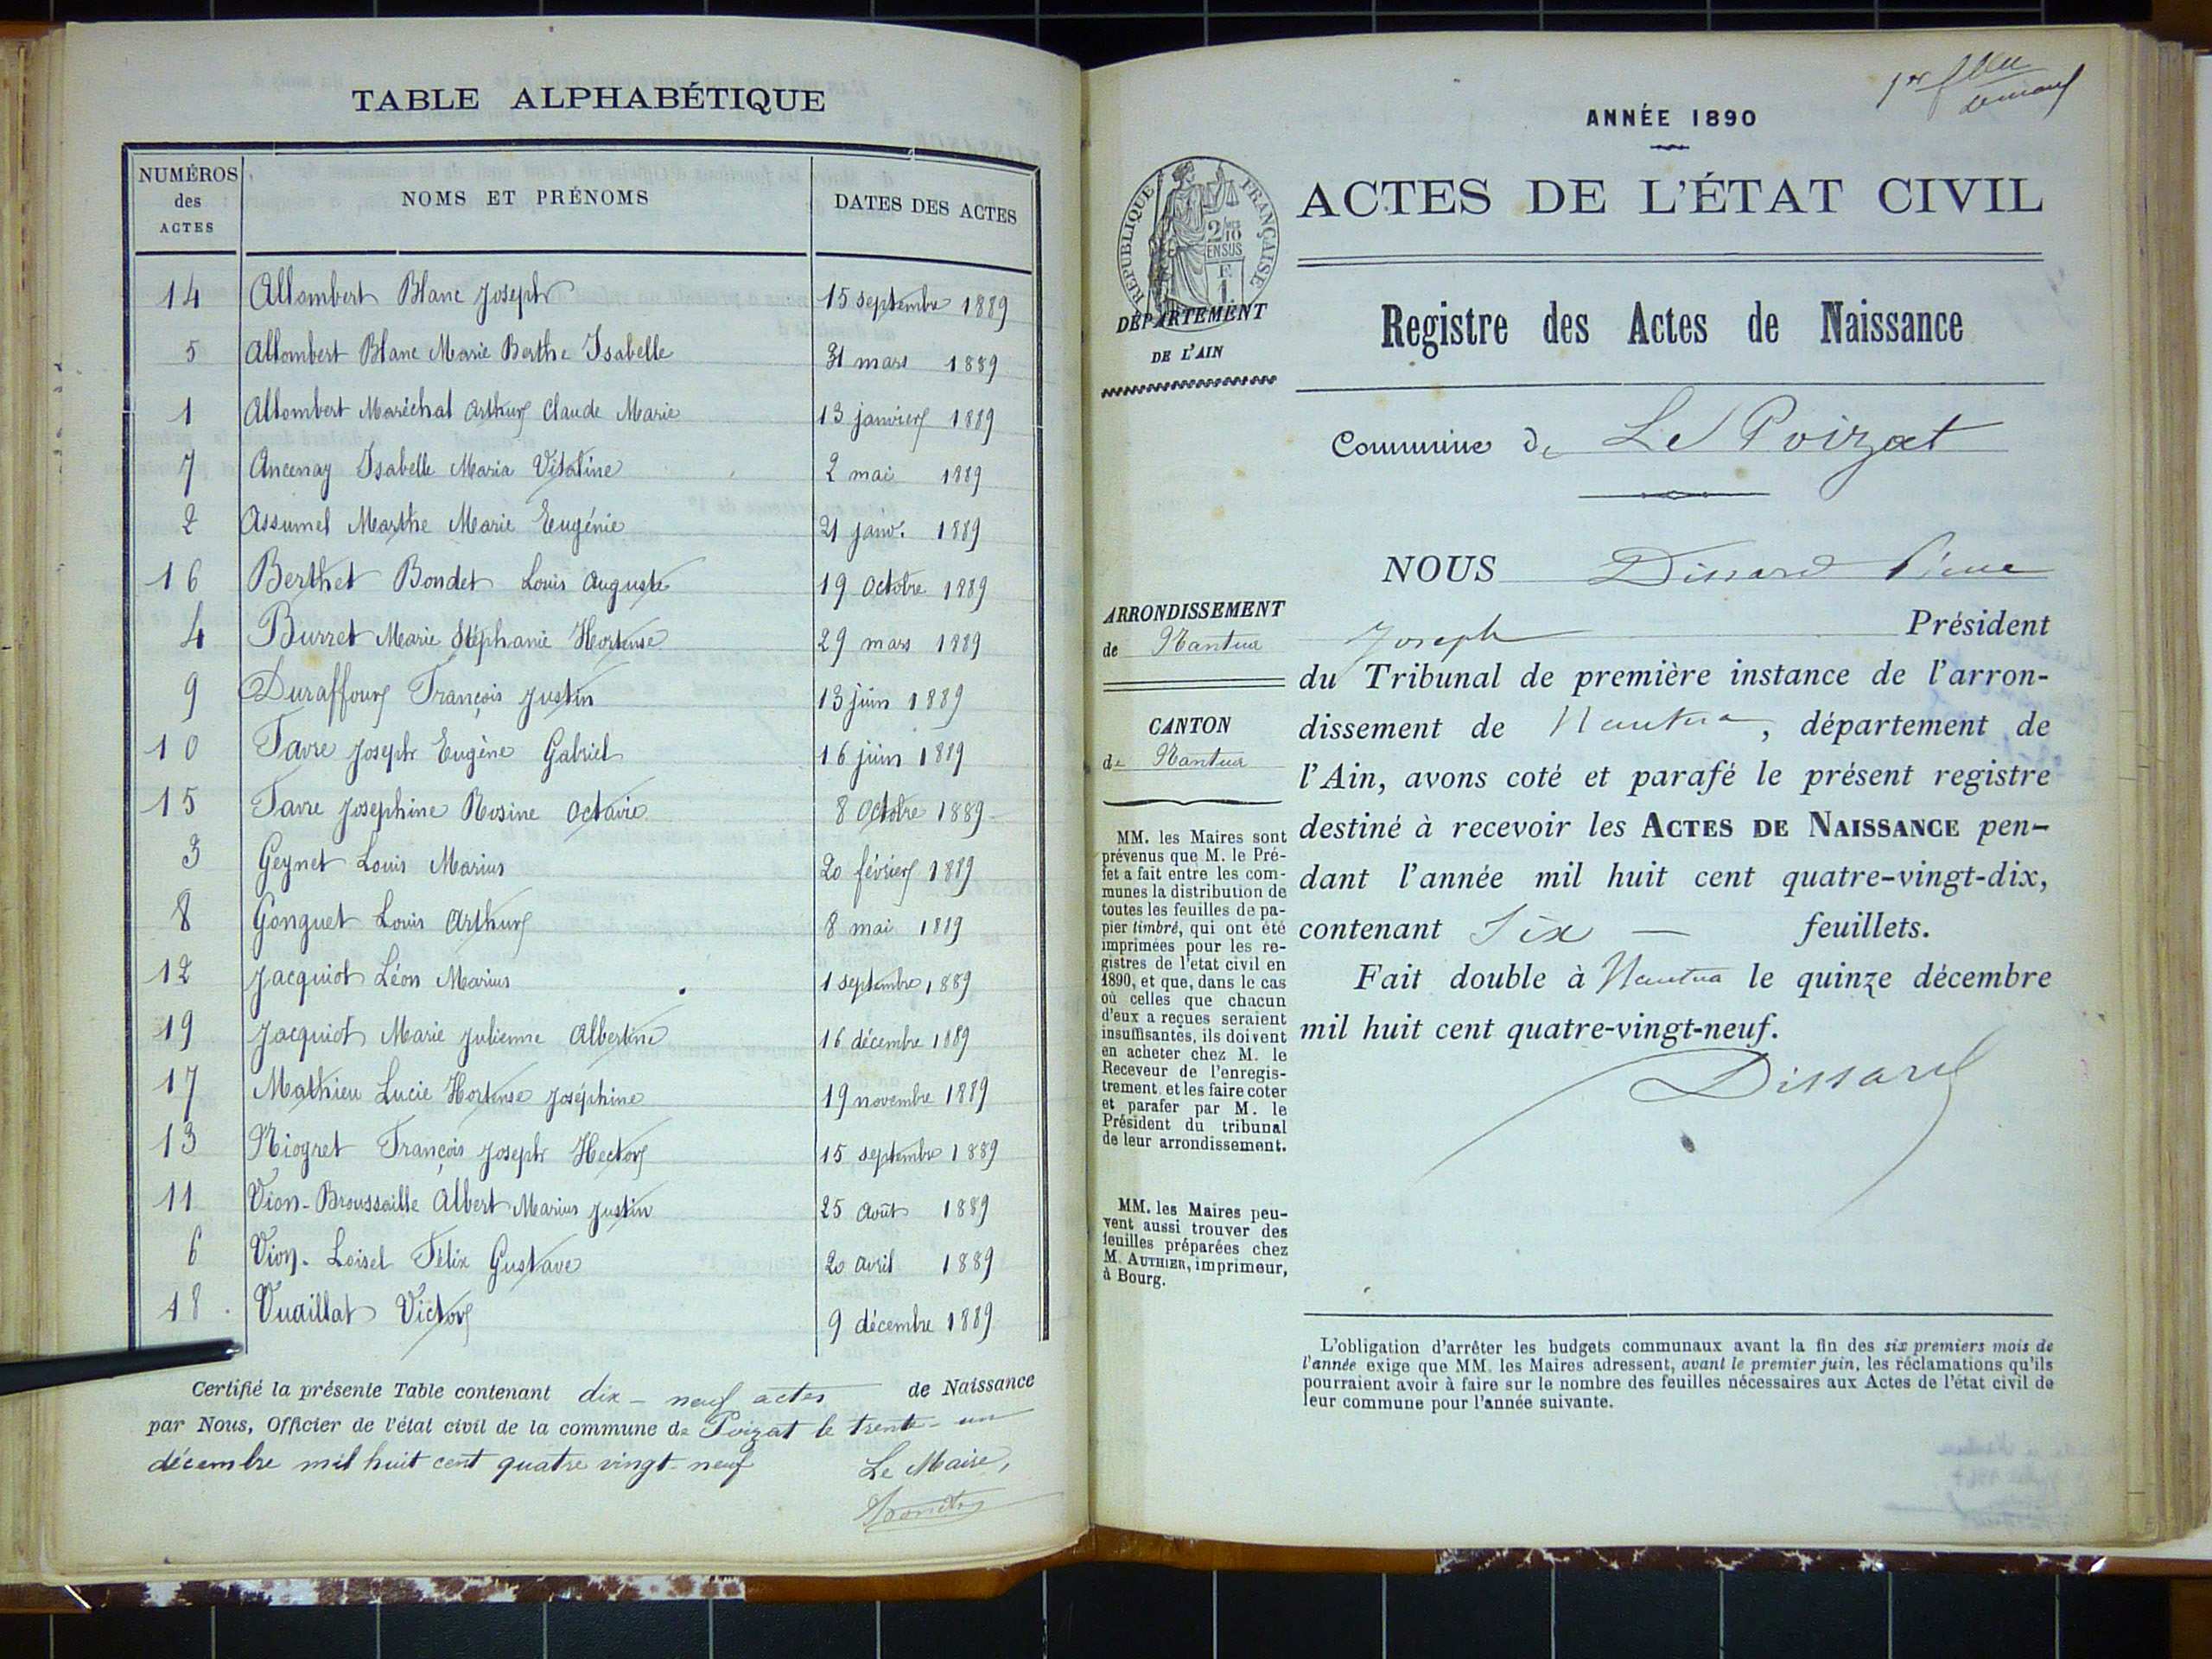 TABLE ALPHABÉTIQUE
NUMÉROS des ACTES NOMS ET PRÉNOMS DATES DES ACTES
14 Allombert Blanc Joseph 15 septembre 1889
5 Allombert Blanc Marie Berthe Isabelle 31 mars 1889
1 Allombert Maréchal Arthur Claude Marie 13 janvier 1889
7 Ancenay Isabelle Maria Vitaline 2 mai 1889
2 Assumel Marthe Marie Eugénie 21 janv. 1889
16 Berthet Bondet Louis Auguste 19 Octobre 1889
4 Burret Marie Stéphanie Hortense 29 mars 1889
9 Duraffour François Justin 13 juin 1889
10 Favre Joseph Eugène Gabriel 16 juin 1889
15 Favre Josephine Rosine Octavie 8 Octobre 1889
3 Geynet Louis Marius 20 février 1889
8 Gonguet Louis Arthur 8 mai 1889
12 Jacquiot Léon Marius 1 septembre 1889
19 Jacquiot Marie Julienne Albertine 16 décembre 1889
17 Mathieu Lucie Hortense Joséphine 19 novembre 1889
13 Niogret François Joseph Hector 15 septembre 1889
11 Vion-Broussaille Albert Marius Justin 25 Août 1889
6 Vion-Loisel Félix Gustave 20 avril 1889
18 Vuaillat Victor 9 décembre 1889
Certifié la présente Table contenant dix-neuf actes de Naissance
par Nous, Officier de l'état civil de la commune de Poizat le trente-un
décembre mil huit cent quatre vingt-neuf
Le Maire,
ANNÉE 1890
ACTES DE L'ÉTAT CIVIL
RÉPUBLIQUE FRANÇAISE
2/10 EN SUS
F. 1.
DÉPARTEMENT
DE L'AIN
Registre des Actes de Naissance
Commune de Le Poizat
ARRONDISSEMENT
de Nantua
CANTON
de Nantua
MM. les Maires sont
prévenus que M. le Pré-
fet a fait entre les com-
munes la distribution de
toutes les feuilles de pa-
pier timbré, qui ont été
imprimées pour les re-
gistres de l'etat civil en
1890, et que, dans le cas
où celles que chacun
d'eux a reçues seraient
insuffisantes, ils doivent
en acheter chez M. le
Receveur de l'enregis-
trement, et les faire coter
et parafer par M. le
Président du tribunal
de leur arrondissement.
MM. les Maires peu-
vent aussi trouver des
feuilles préparées chez
M. AUTHIER, imprimeur,
à Bourg.
NOUS Dissard Pierre
Joseph Président
du Tribunal de première instance de l'arron-
dissement de Nantua, département de
l'Ain, avons coté et parafé le présent registre
destiné à recevoir les ACTES DE NAISSANCE pen-
dant l'année mil huit cent quatre-vingt-dix,
contenant Six — feuillets.
Fait double à Nantua le quinze décembre
mil huit cent quatre-vingt-neuf.
Dissard
L'obligation d'arrêter les budgets communaux avant la fin des six premiers mois de
l'année exige que MM. les Maires adressent, avant le premier juin, les réclamations qu'ils
pourraient avoir à faire sur le nombre des feuilles nécessaires aux Actes de l'état civil de
leur commune pour l'année suivante.